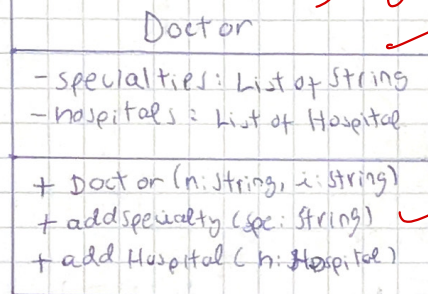 Doctor
- specialties: List of String
- hospitals: List of Hospital
+ Doctor (n: String, i: String)
+ addspecialty (spe: String)
+ add Hospital (h: Hospital)